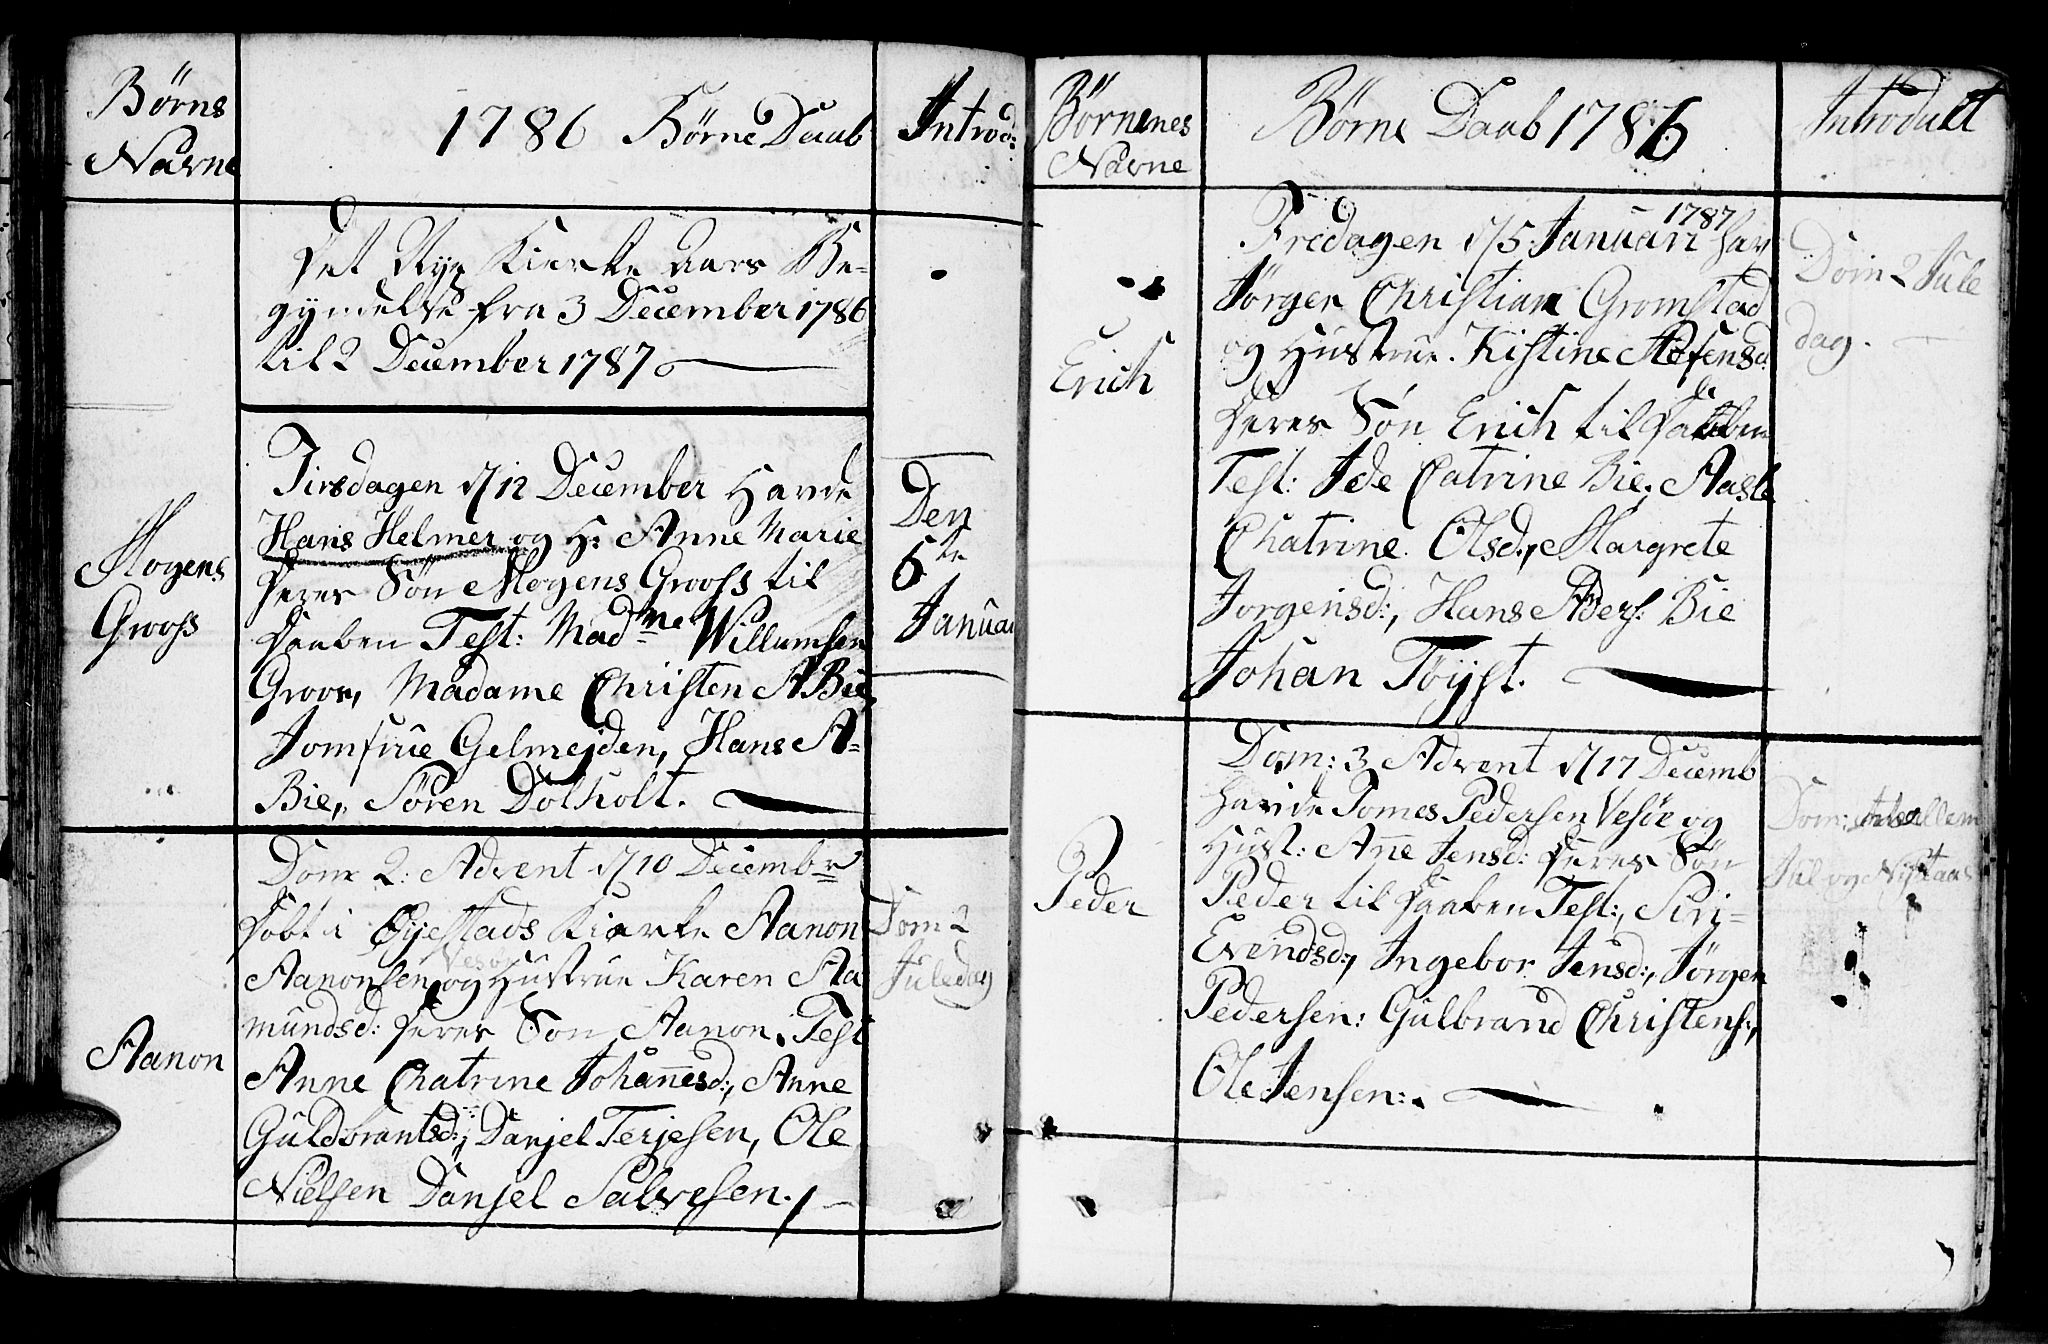 Børns
Navne
1786 Børne Daab
Introd:
Det Nye Kierke aars Be-
gyndelse fra 3 December 1786
til 2 December 1787
Mogens
Grooss
Tirsdagen d/12 December Havde
Hans Helmer og H: Anne Marie
deres Søn Mogens Grooss til
Daaben Test: Madme Willumsen
Groos, Madame Christen A Bie,
Jomfrue Gelmejden, Hans A=
Bie, Søren Dolholt.
Den
6te
Januar
Aanon
Dom 2: Advent d/10 Decembr
døbt i Øyestads Kierke Aanon
Vesør
Aanonsen og Hustrue Karen Aa
mundsd: deres Søn Aanon. Test
Anne Chatrine Johannesd:, Anne
Guldbrantsd:, Danjel Terjesen, Ole
Nielsen Danjel Salvesen.
Dom 2
Juledag
Børnenes
Navne
Børne Daab 1786
Introdukt
Erich
1787
Fredagen d/5 Januarii har
Jørgen Christian Gromstad
og Hustrue. Kistine
deres Søn Erich til Daaben
Test: Ide Catrine Bie, Aasle
Chatrine Olsd:, Margrete
Jorgensd:, Hans Aders: Bie
Johan Töyst.
Dom 2 Jule
dag.
Peder
Dom: 3 Advent d/17 Decemb
havde Tomes Pedersen Vesör og
Hust: Anne Jensd: deres Søn
Peder til Daaben Test:, Siri
Evendsd:, Ingebor Jensd:, Jörgen
Pedersen: Gulbrand Christens:,
Ole Jensen:.
Dom: Imellem
Jul og Nytaar